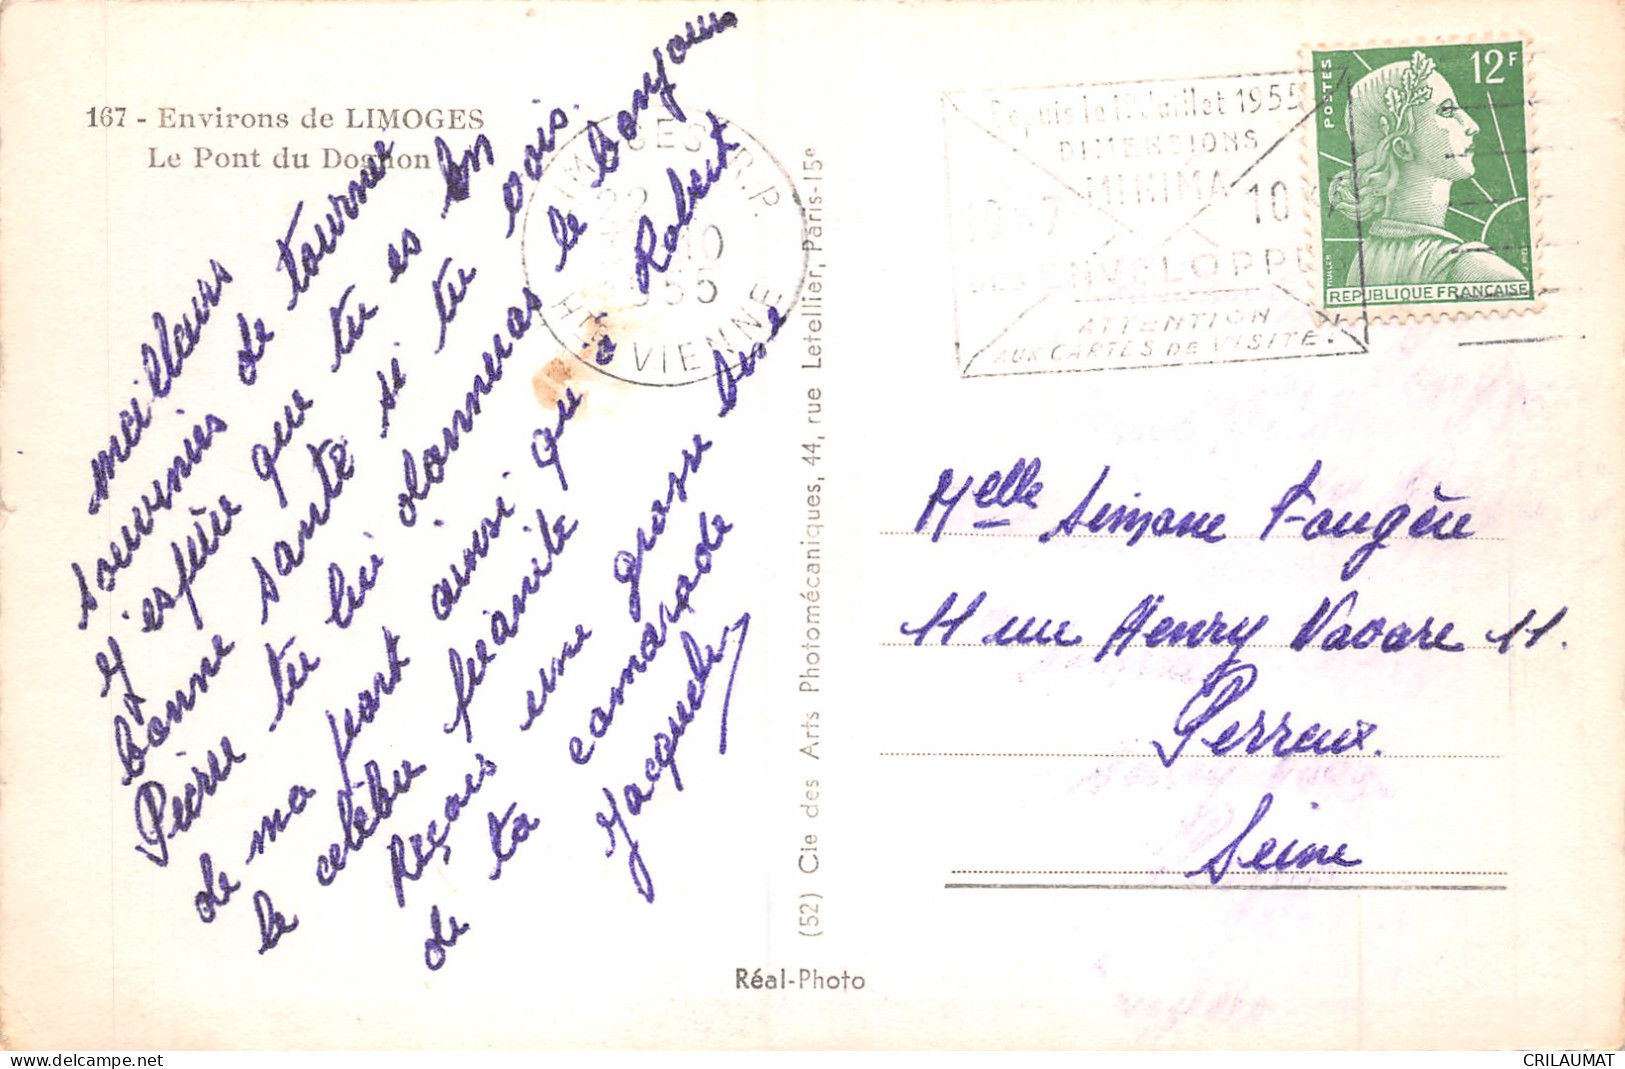 167 - Environs de LIMOGES
Le Pont du Dognon
meilleurs
souvenirs de tournée
J'espère que tu es en
bonne santé si tu vois
Pierre tu lui donneras le bonjour
de ma part ainsi qu'à Robert
le celébre
Reçois une grosse bise
de ta camarade
LIMOGES R.P.
22
10
1955
HTE VIENNE
Depuis le 1er Juillet 1955
DIMENSIONS
MINIMA
10 x 7
DES ENVELOPPES
ATTENTION
AUX CARTES DE VISITE!
POSTES
12F
MULLER
REPUBLIQUE FRANÇAISE
(52) Cie des Arts Photomécaniques, 44, rue Letellier, Paris-15e
Melle Simone Fougère
11 rue Henry Navare 11.
Perreux.
Seine
Réal-Photo
https://www.delcampe.net
CRILAUMAT